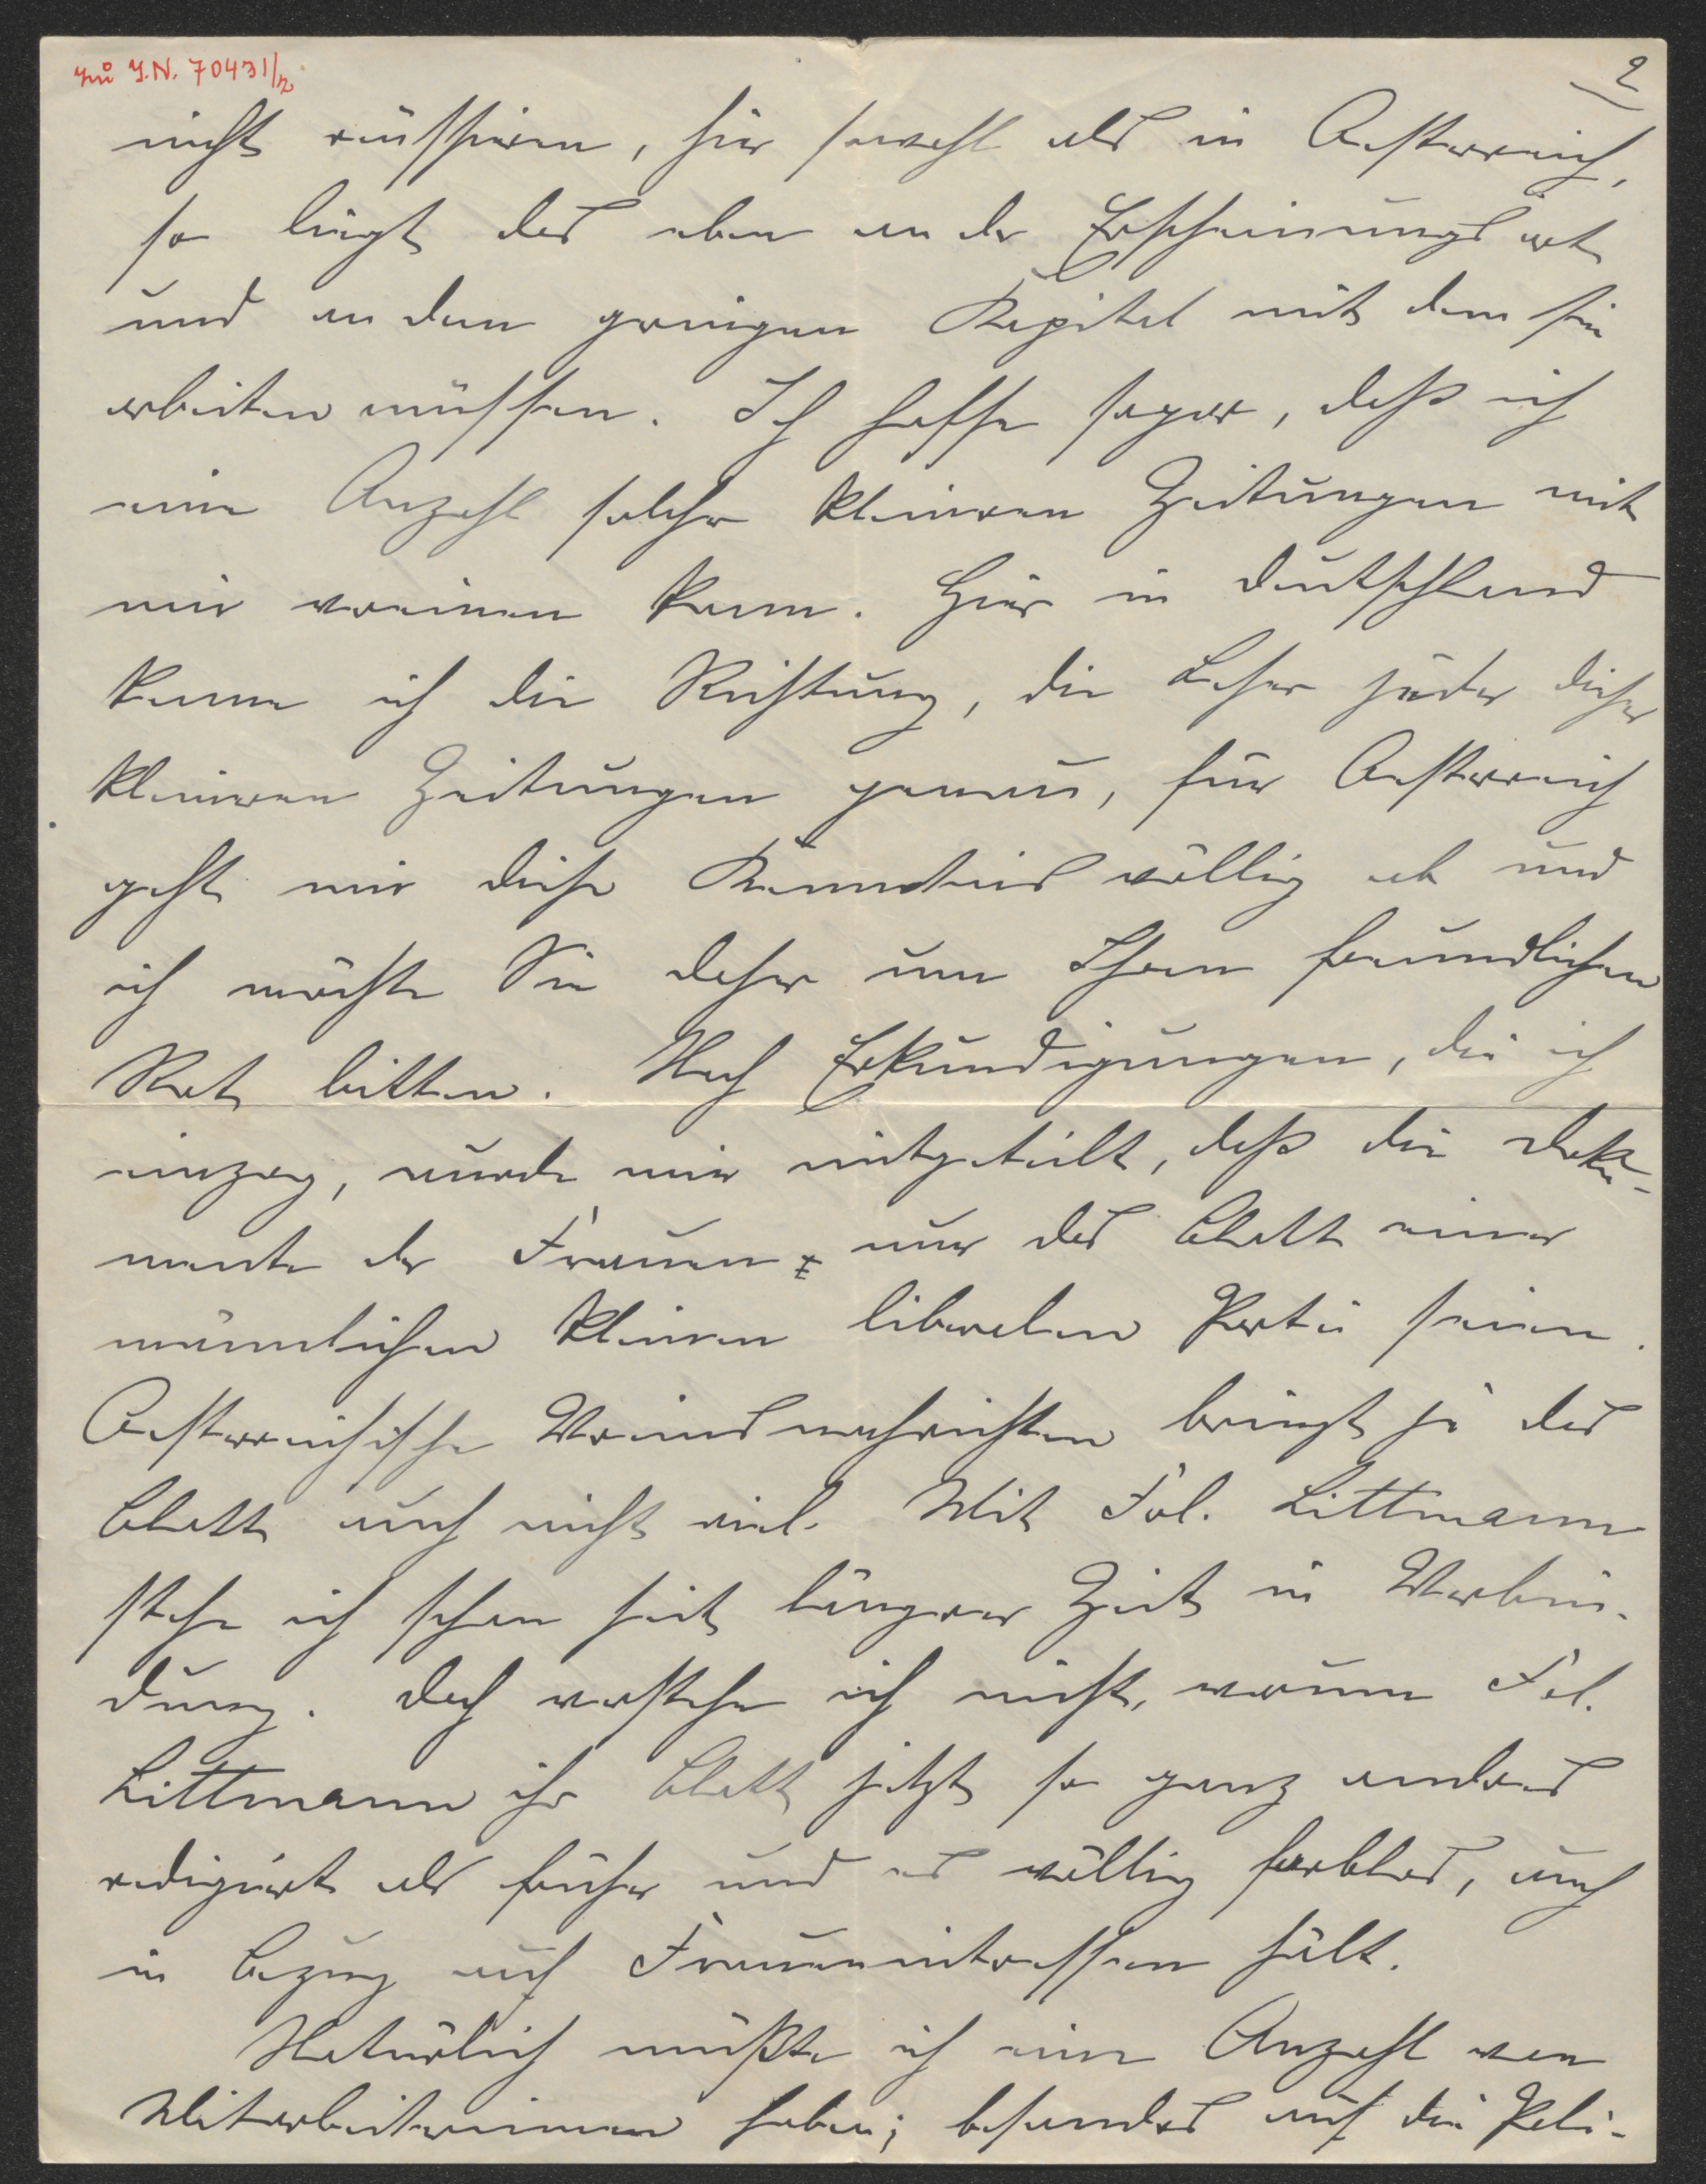 zu I.N. 70431/2
2
nicht reüssiren, hier sowohl als in Oesterreich,
so liegt das eben an der Erscheinungsart
und an dem geringen Kapital mit dem sie
arbeiten müssen. Ich hoffe sogar, daß ich
eine Anzahl solcher kleineren Zeitungen mit
mir vereinen kann. Hier in Deutschland
kenne ich die Richtung, die Leser jeder dieser
kleineren Zeitungen genau, für Oesterreich
geht mir diese Kenntnis völlig ab und
ich möchte Sie daher um Ihren freundlichen
Rat bitten. Nach Erkundigungen, die ich
einzog, wurde mir mitgeteilt, daß die Doku-
mente der Frauen nur das Blatt einer
männlichen kleinen liberalen Partei seien.
Oesterreichische Vereinsnachrichten bringt ja das
Blatt auch nicht viel. Mit Frl. Littmann
stehe ich schon seit längerer Zeit in Verbin-
dung. Doch verstehe ich nicht, warum Frl.
Littmann ihr Blatt jetzt so ganz anders
redigiert als früher und es völlig farblos, auch
in Bezug auf Fraueninteressen hält.
Natürlich müßte ich eine Anzahl von
Mitarbeiterinnen haben; besonders auf die Poli-